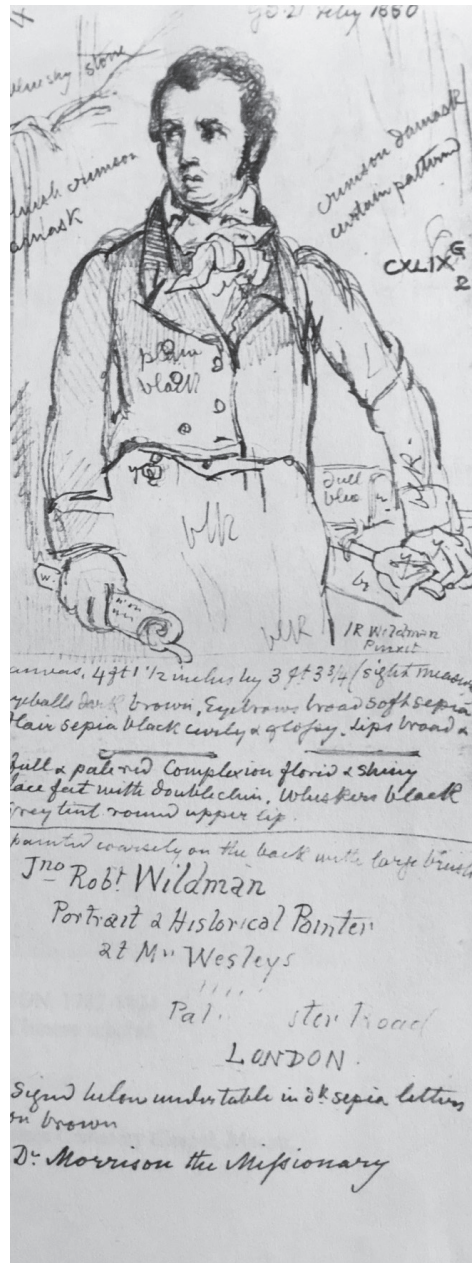 1860
stone
crimson
crimson damask
curtain pattern
CXLIX G
2
black
dull
blue
blk
blk
W.
I R Wildman
Pinxit
4 ft 1 1/2 inches by 3 ft 3 3/4 (sight measure
eyeballs dark brown, Eyebrows broad soft sepia
Hair sepia black curly & glossy. Lips broad &
full & pale red Complexion florid & shiny
face fat with double chin, Whiskers black
grey tint round upper lip.
painted coarsely on the back with large brush
Jno Robt Wildman
Portrait & Historical Painter
at Mrs Wesleys
Pal ster Road
LONDON.
Signd below under table in dk sepia letters
on brown
Dr Morrison the Missionary